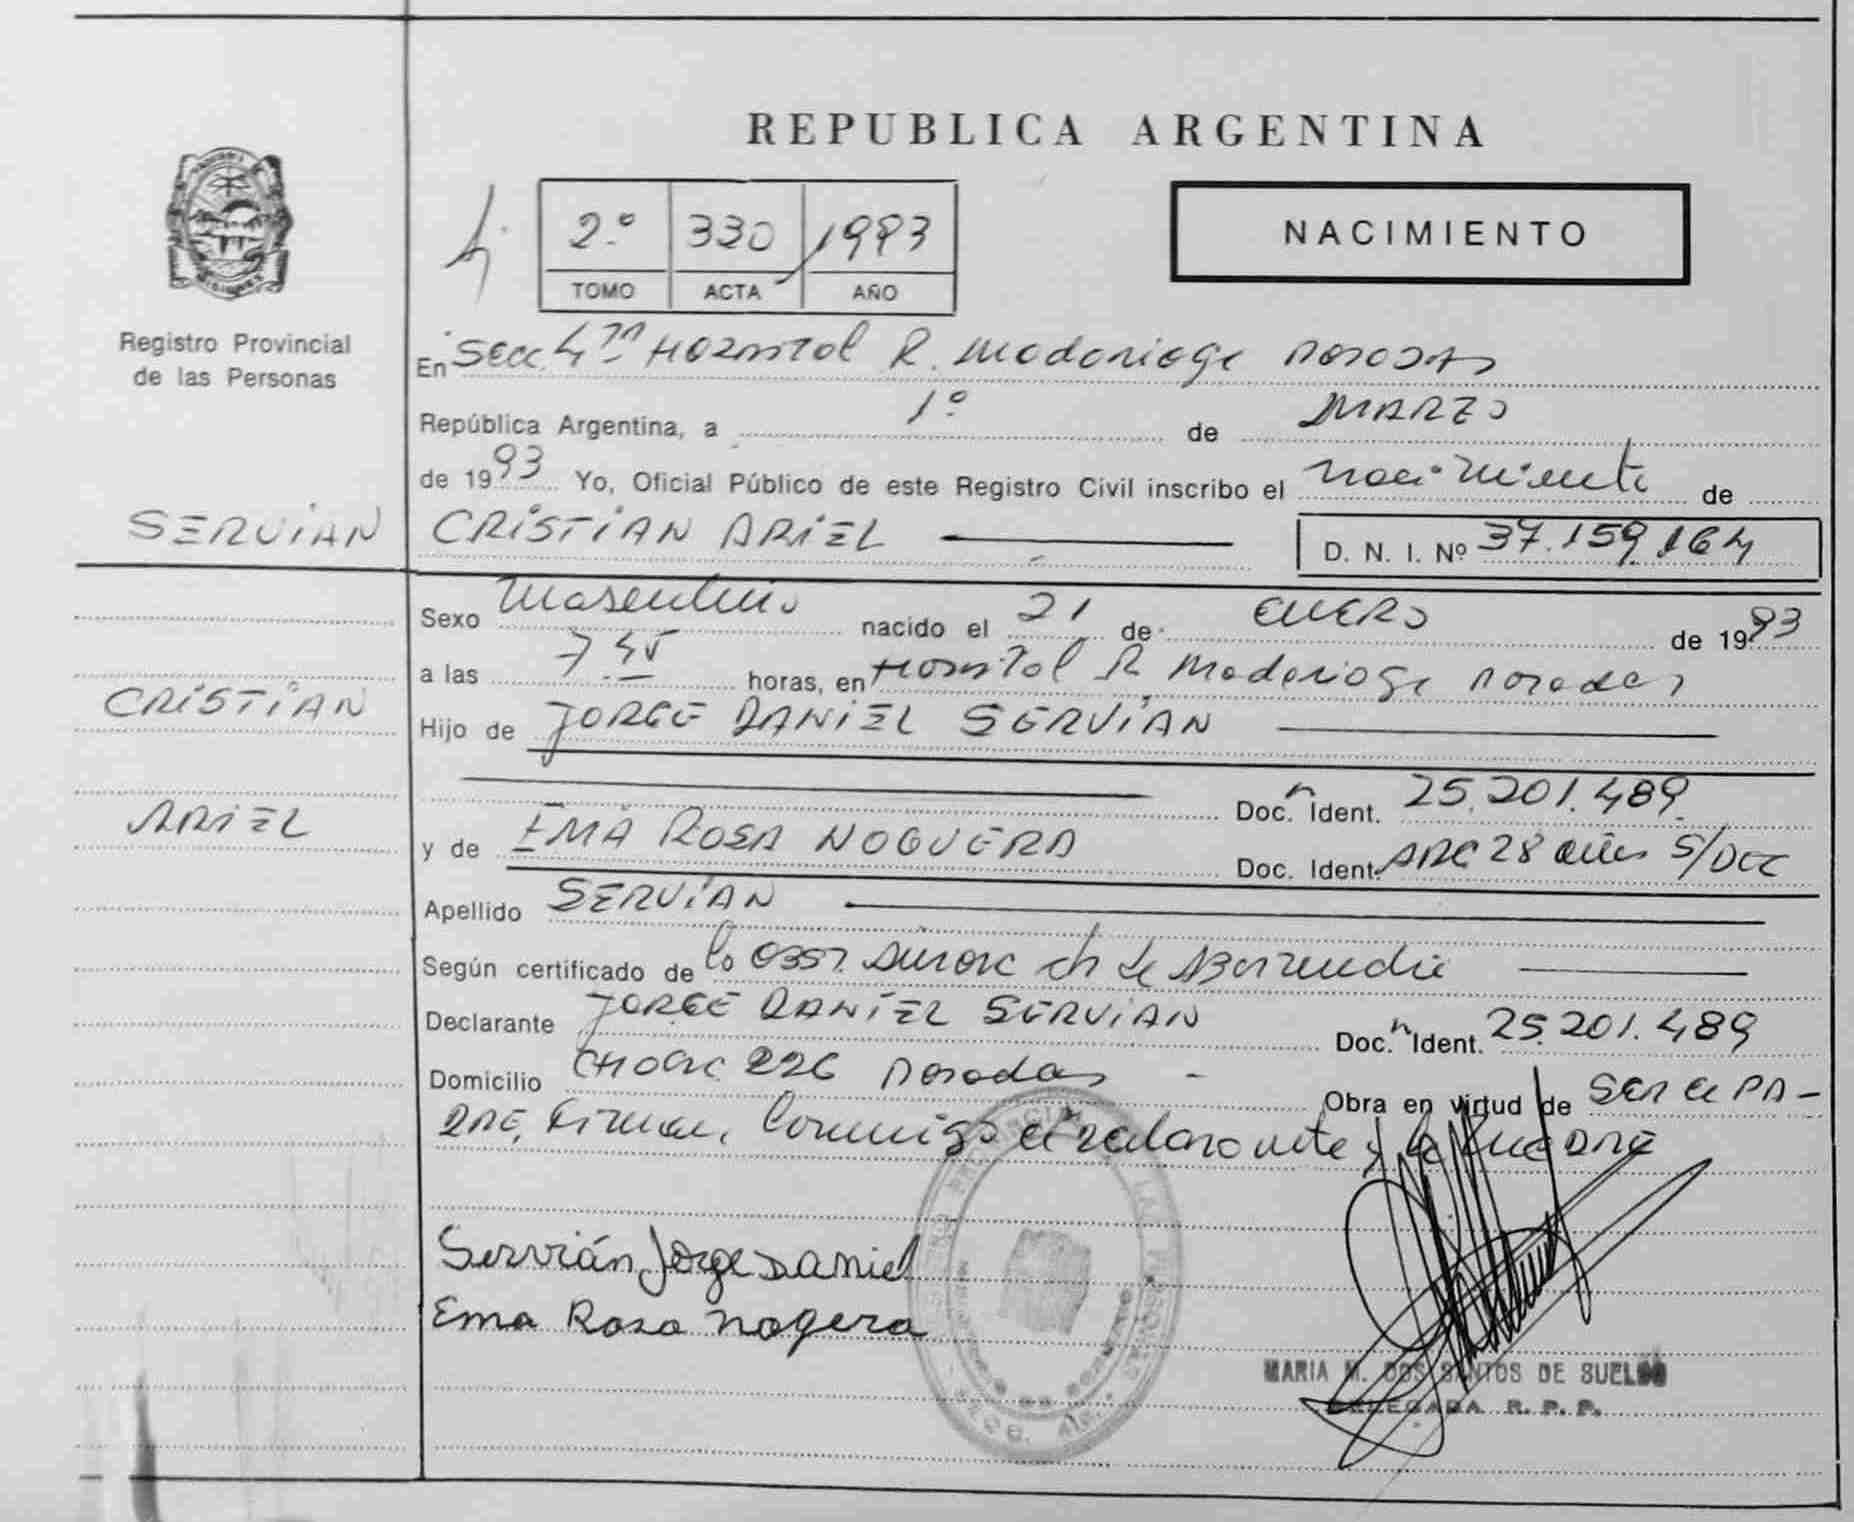 REPUBLICA ARGENTINA
NACIMIENTO
2º 330 1993
TOMO ACTA AÑO
Registro Provincial
de las Personas
En Secc. 4ta Hospital R. Madariaga Posadas
República Argentina, a 1º de MARZO
de 1993 Yo, Oficial Público de este Registro Civil inscribo el nacimiento de
SERVIAN CRISTIAN ARIEL
D. N. I. Nº 37.159.164
Sexo Masculino nacido el 21 de ENERO de 1993
a las 7 45 horas, en Hospital R. Madariaga Posadas
CRISTIAN
Hijo de JORGE DANIEL SERVIAN
Doc. n Ident. 25.201.489.
ARIEL
y de EMA ROSA NOGUERA Doc. Ident. ARG 28 años S/DOC
Apellido SERVIAN
Según certificado de la Obst.
Declarante JORGE DANIEL SERVIAN Doc. n Ident. 25.201.489
Domicilio 226 Posadas - Obra en virtud de SER el PA-
DRE, Firman, Conmigo el declarante y la madre
Servián Jorge Daniel
Ema Rosa Nogera
MARIA M. DOS SANTOS DE SUELDO
DELEGADA R. P. P.